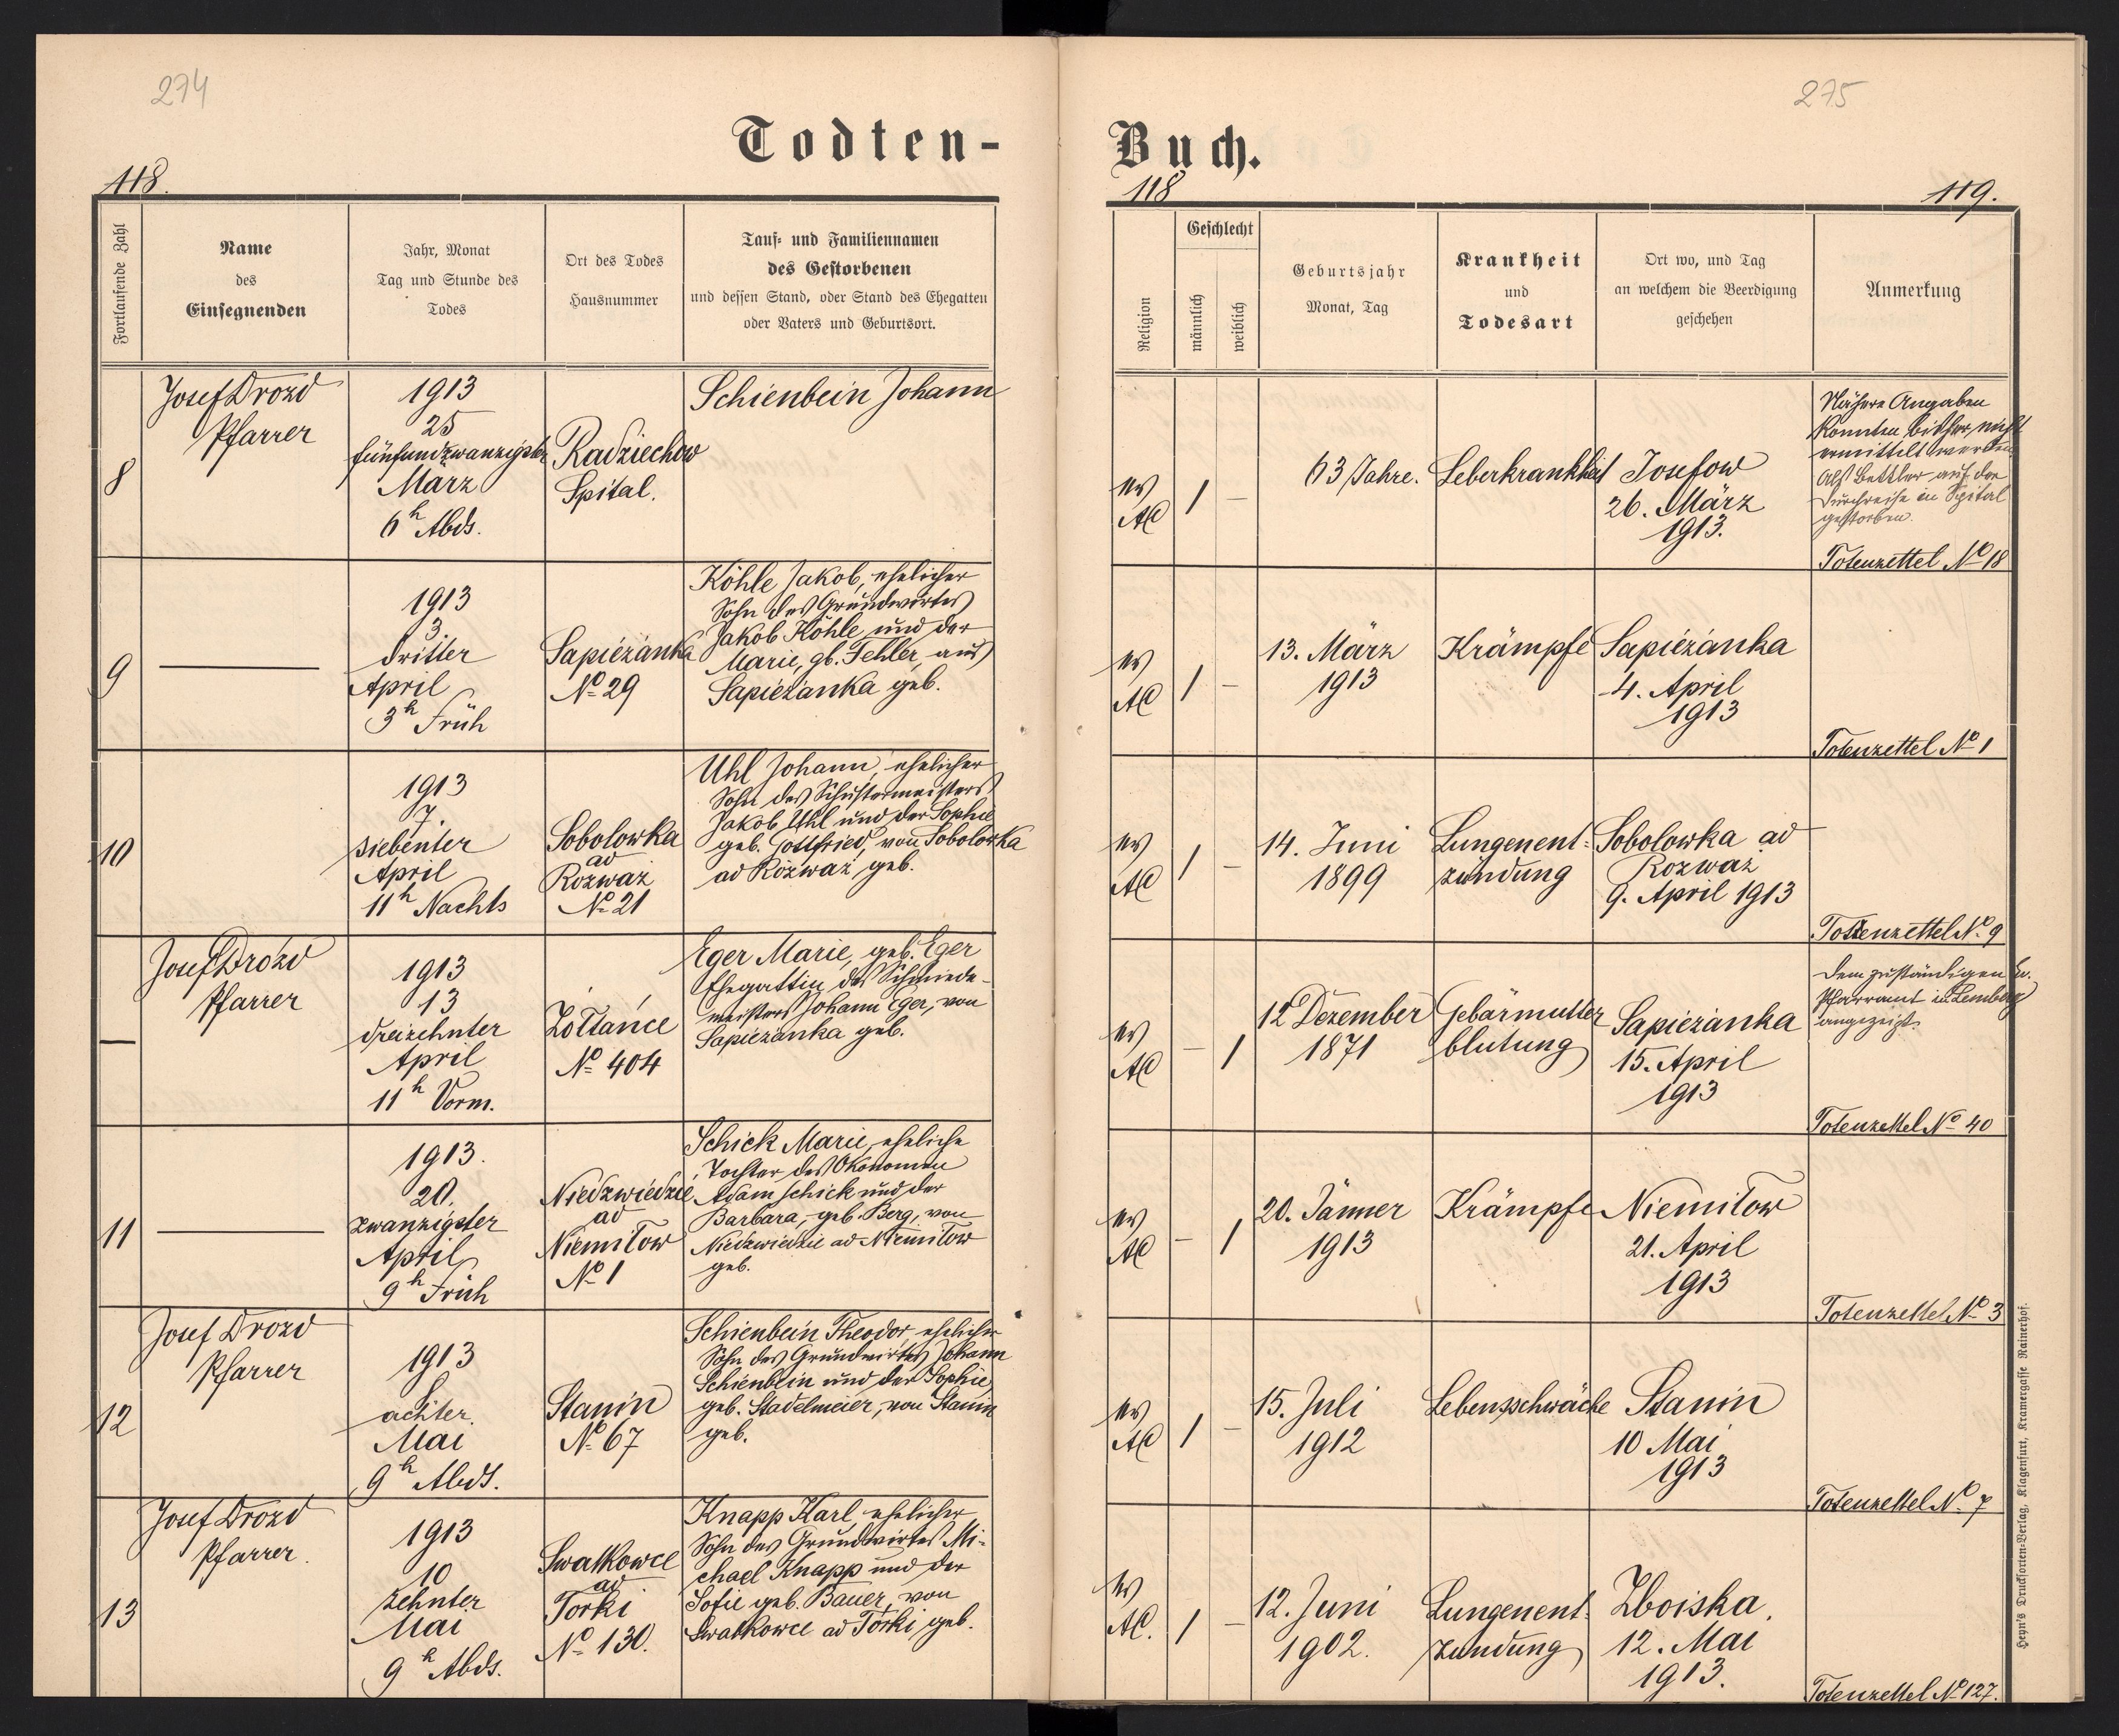 274
275
Todten-
Buch.
118.
118
119.
Fortlaufende Zahl
Name
des
Einsegnenden
Jahr, Monat
Tag und Stunde des
Todes
Ort des Todes
Hausnummer
Tauf- und Familiennamen
des Gestorbenen
und dessen Stand, oder Stand des Ehegatten
oder Vaters und Geburtsort.
Religion
Geschlecht
männlich
weiblich
Geburtsjahr
Monat, Tag
Krankheit
und
Todesart
Ort wo, und Tag
an welchem die Beerdigung
geschehen
Anmerkung
8
Josef Drozd
Pfarrer
1913
25
fünfundzwanzigster
März
6h Abds.
Radziechow
Spital.
Schienbein Johann
ev
AC
1
–
63 Jahre.
Leberkrankheit
Josefow
26. März
1913.
Nähere Angaben
konnten bisher nicht
ermittelt werden
Als Bettler auf der
Durchreise in Spital
gestorben.
Totenzettel No 18
9
1913
3.
dritter
April
3h Früh
Sapieżanka
No 29
Köhle Jakob, ehelicher
Sohn des Grundwirtes
Jakob Köhle und der
Marie, gb. Fehler, aus
Sapieżanka geb.
ev
AC
1
–
13. März
1913
Krämpfe
Sapieżanka
4. April
1913
Totenzettel No 1
10
1913
7.
siebenter
April
11h Nachts
Sobolowka
ad
Rozważ
No 21
Uhl Johann, ehelicher
Sohn des Schustermeisters
Jakob Uhl und der Sophie
geb. Gottfried, von Sobolowka
ad Rozważ, geb.
ev
AC
1
–
14. Juni
1899
Lungenent-
zündung
Sobolowka ad
Rozważ
9. April 1913
Totenzettel No. 9
–
Josef Drozd
Pfarrer
1913
13
dreizehnter
April
11h Vorm.
Żółtańce
No 404
Eger Marie, geb. Eger
Ehegattin des Schmiede-
meisters Johann Eger, von
Sapieżanka geb.
ev
AC
–
1
12 Dezember
1871
Gebärmutter
blutung
Sapieżanka
15. April
1913
Dem zuständigen ev.
Pfarramt in Lemberg
angezeigt.
Totenzettel No 40
11
1913.
20.
zwanzigster
April
9h Früh
Niedzwiedzie
ad
Niemiłow
No 1
Schick Marie, eheliche
Tochter des Ökonomen
Adam Schick und der
Barbara, geb. Berg, von
Niedzwiedzie ad Niemiłow
geb.
ev
AC
–
1
20. Jänner
1913
Krämpfe
Niemiłow
21. April
1913
Totenzettel No 3
12
Josef Drozd
Pfarrer
1913
8
achter.
Mai
9h Abds.
Stanin
No 67
Schienbein Theodor, ehelicher
Sohn des Grundwirtes Johann
Schienbein und der Sophie
geb. Stadelmeier, von Stanin
geb.
ev
AC
1
–
15. Juli
1912
Lebensschwäche
Stanin
10 Mai
1913
Totenzettel No 7
13
Josef Drozd
Pfarrer.
1913
10
zehnter
Mai
9h Abds.
Swatkowce
ad
Torki
No 130.
Knapp Karl, ehelicher
Sohn des Grundwirtes Mi-
chael Knapp und der
Sofie geb. Bauer, von
Swatkowce ad Torki, geb.
ev
AC.
1
–
12. Juni
1902.
Lungenent-
zündung
Zboiska,
12. Mai
1913.
Totenzettel No 127.
Heyn's Drucksorten-Verlag, Klagenfurt, Kramergasse Rainerhof.